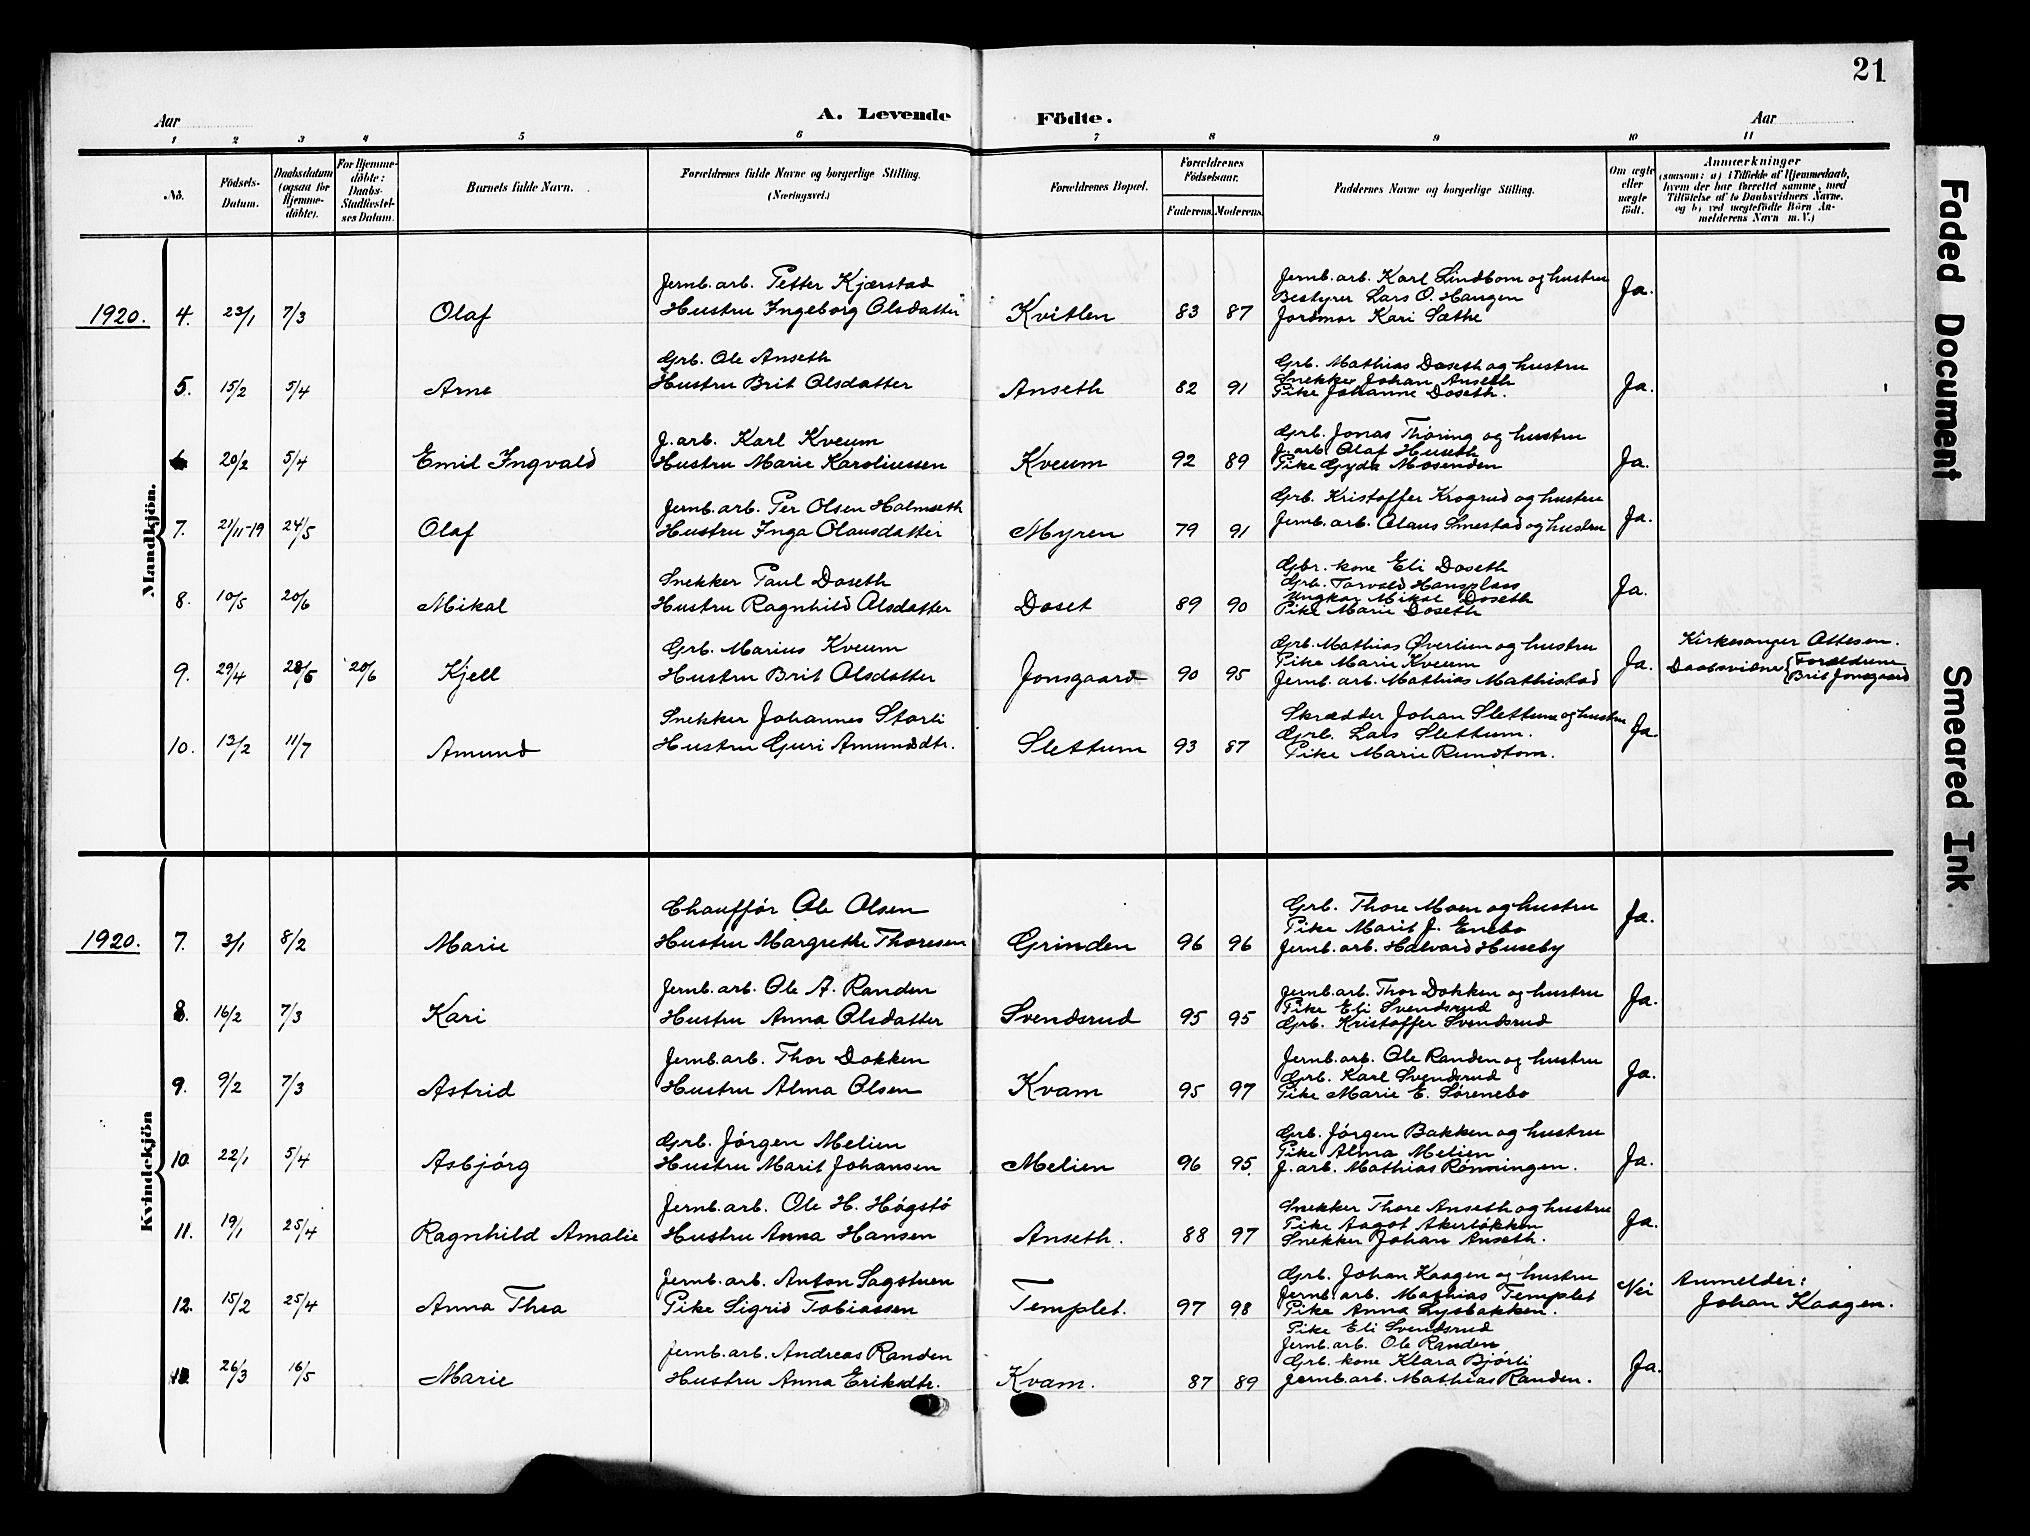 21
A. Levende Födte.
Aar
Aar
1 2 3 4 5 6 7 8 9 10 11
No.
Födsels-Datum.
Daabsdatum (ogsaa for Hjemme-döbte).
For Hjemme-döbte: Daabs-Stadfæstel-ses Datum.
Barnets fulde Navn.
Forældrenes fulde Navne og borgerlige Stilling. (Næringsvei.)
Forældrenes Bopæl.
Forældrenes Födselsaar.
Faderens. Moderens.
Faddernes Navne og borgerlige Stilling.
Om ægte eller uægte födt.
Anmærkninger
(saasom: a) i Tilfælde af Hjemmedaab,
hvem der har forrettet samme, med
Tilföielse af to Daabsvidners Navne.
og b) ved uægtefödte Börn An-
melderens Navn m. V.)
Mandkjön.
Jernb. arb. Petter Kjærstad
Jernb. arb. Karl Lindbom og hustru
1920. 4. 23/1 7/3 Olaf Hustru Ingeborg Olsdatter Kvitlen 83 87 Bestyrer Lars O. Haugen Ja.
Jordmor Kari Sæthe
Grb. Ole Anseth
Grb. Mathias Doseth og hustru
5. 15/2 5/4 Arne Hustru Brit Olsdatter Anseth 82 91 Snekker Johan Anseth Ja.
Pike Johanne Doseth.
J. arb. Karl Kveum
Grb. Jonas Thoring og hustru
6 20/2 5/4 Emil Ingvald Hustru Marie Karoliussen Kveum 92 89 J. arb. Olaf Huseth Ja.
Pike Gyda Mosenden
Jernb. arb. Per Olsen Holmseth
Grb. Kristoffer Krogrud og hustru
7. 21/11-19 24/5 Olaf Hustru Inga Olausdatter Myren 79 91 Jernb. arb. Olaus Smestad og hustru Ja.
Snekker Paul Doseth
Gbr. kone Eli Doseth
Grb. Torvald Hansplass
8. 10/5 20/6 Mikal Hustru Ragnhild Olsdatter Doset 89 90 Ungkar Mikal Doseth Ja.
Pike Marie Doseth
Grb. Marius Kveum
Grb. Mathias Øverlien og hustru Kirkesanger Ottesen.
9. 29/4 28/5 20/6 Kjell Hustru Brit Olsdatter Jonsgaard 90 95 Pike Marie Kveum Ja. Daabsvidne { Forældrene
Jernb. arb. Mathias Mathistad Brit Jonsgaard
Snekker Johannes Storli
Skrædder Johan Slettum og hustru
10. 13/2 11/7 Amund Hustru Guri Amundsdtr. Slettum 93 87 Grb. Lars Slettum. Ja.
Pike Marie Rundtom.
Kvindekjön
Chauffør Ole Olsen
Grb. Thore Moen og hustru
1920. 7. 3/1 8/2 Marie Hustru Margrethe Thoresen Grinden 96 96 Pike Marit J. Enebo Ja.
Jernb. arb. Halvard Huseby
Jernb. arb. Ole A. Randen
Jernb. arb. Thor Dokken og hustru
8. 16/2 7/3 Kari Hustru Anna Olsdatter Svendsrud 95 95 Pike Eli Svendsrud Ja.
Grb. Kristoffer Svendsrud
Jernb. arb. Thor Dokken
Jernb. arb. Ole Randen og hustru
9. 9/2 7/3 Astrid Hustru Alma Olsen Kvam 95 97 Grb. Karl Svendsrud Ja.
Pike Marie E. Sørenebo
Grb. Jørgen Melien
Grb. Jørgen Bakken og hustru
10. 22/1 5/4 Asbjørg Hustru Marit Johansen Melien 96 95. Pike Alma Melien Ja.
J. arb. Mathias Rønningen.
Jernb. arb. Ole H. Høgstø
Snekker Thore Anseth og hustru
11. 19/1 25/4 Ragnhild Amalie Hustru Anna Hansen Anseth. 88 97 Pike Aagot Akerløkken Ja.
Snekker Johan Anseth.
Jernb. arb. Anton Sagstuen
Grb. Johan Kaagen og hustru Anmelder:
12. 15/2 25/4 Anna Thea Pike Sigrid Tobiassen Templet. 97 98 Jernb. arb. Mathias Templet Nei Johan Kaagen.
Pike Anna Lysbakken.
Pike Eli Svendsrud
Jernb. arb. Andreas Randen
Jernb. arb. Ole Randen
26/3 16/5 Marie Hustru Anna Eriksdtr. Kvam. 87 89 Grb. kone Klara Bjørli Ja.
Jernb. arb. Mathias Randen.
Faded Document
Smeared Ink